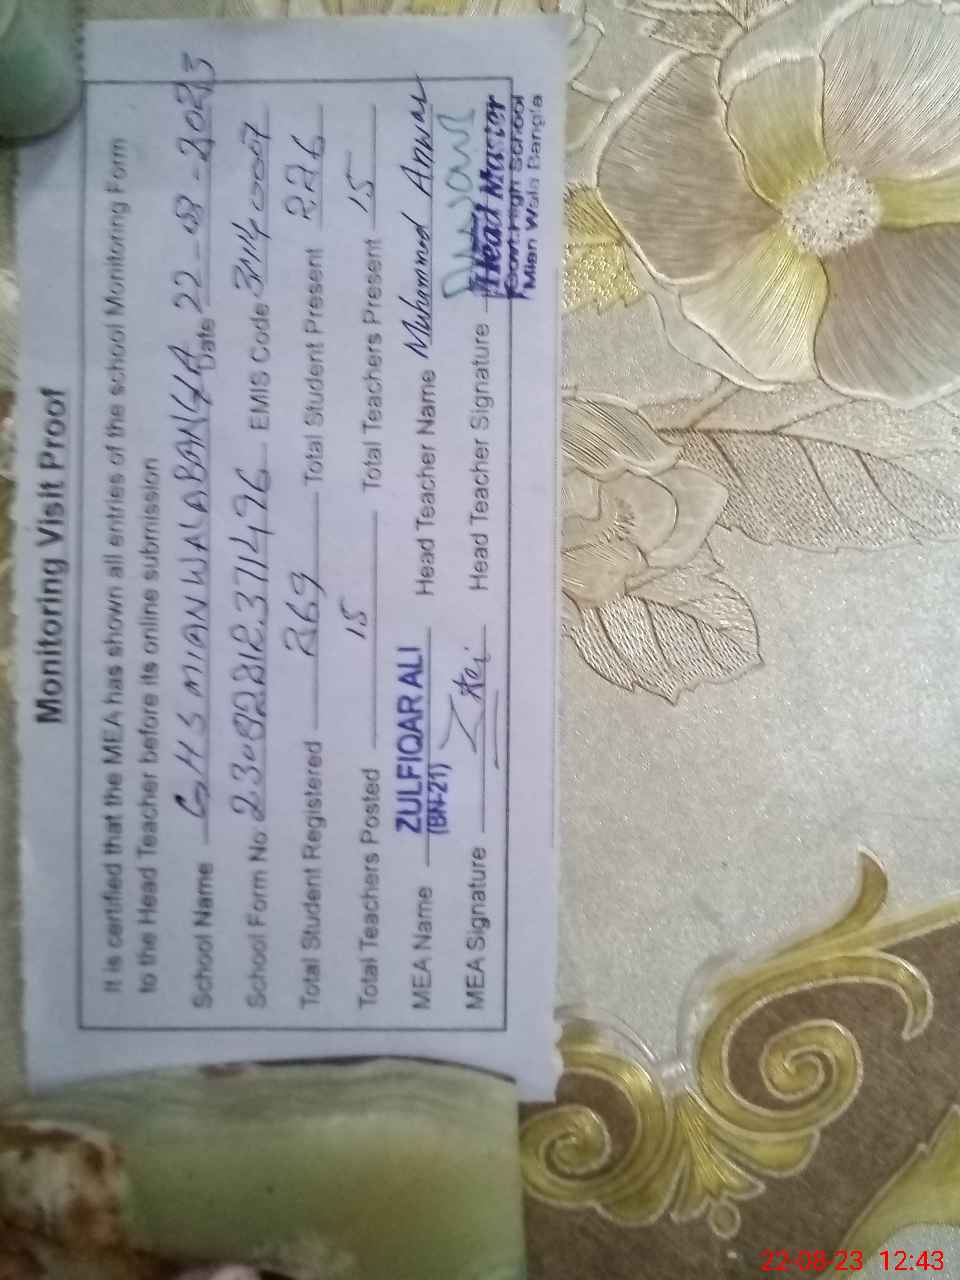 Monitoring Visit Proof
It is certified that the MEA has shown all entries of the school Monitoring Form
to the Head Teacher before its online submission
School Name GHS MIANWALA BANGLA Date 22-8-2023
School Form No EMIS Code
Total Student Registered 269 Total Student Present 226
Total Teachers Posted 15 Total Teachers Present 15
MEA Name ZULFIQAR ALI Head Teacher Name Muhammad Anwar
(BN-21)
MEA Signature Head Teacher Signature
Head Master
Govt. High School
Mian Wala Bangla
22-08-23 12:43